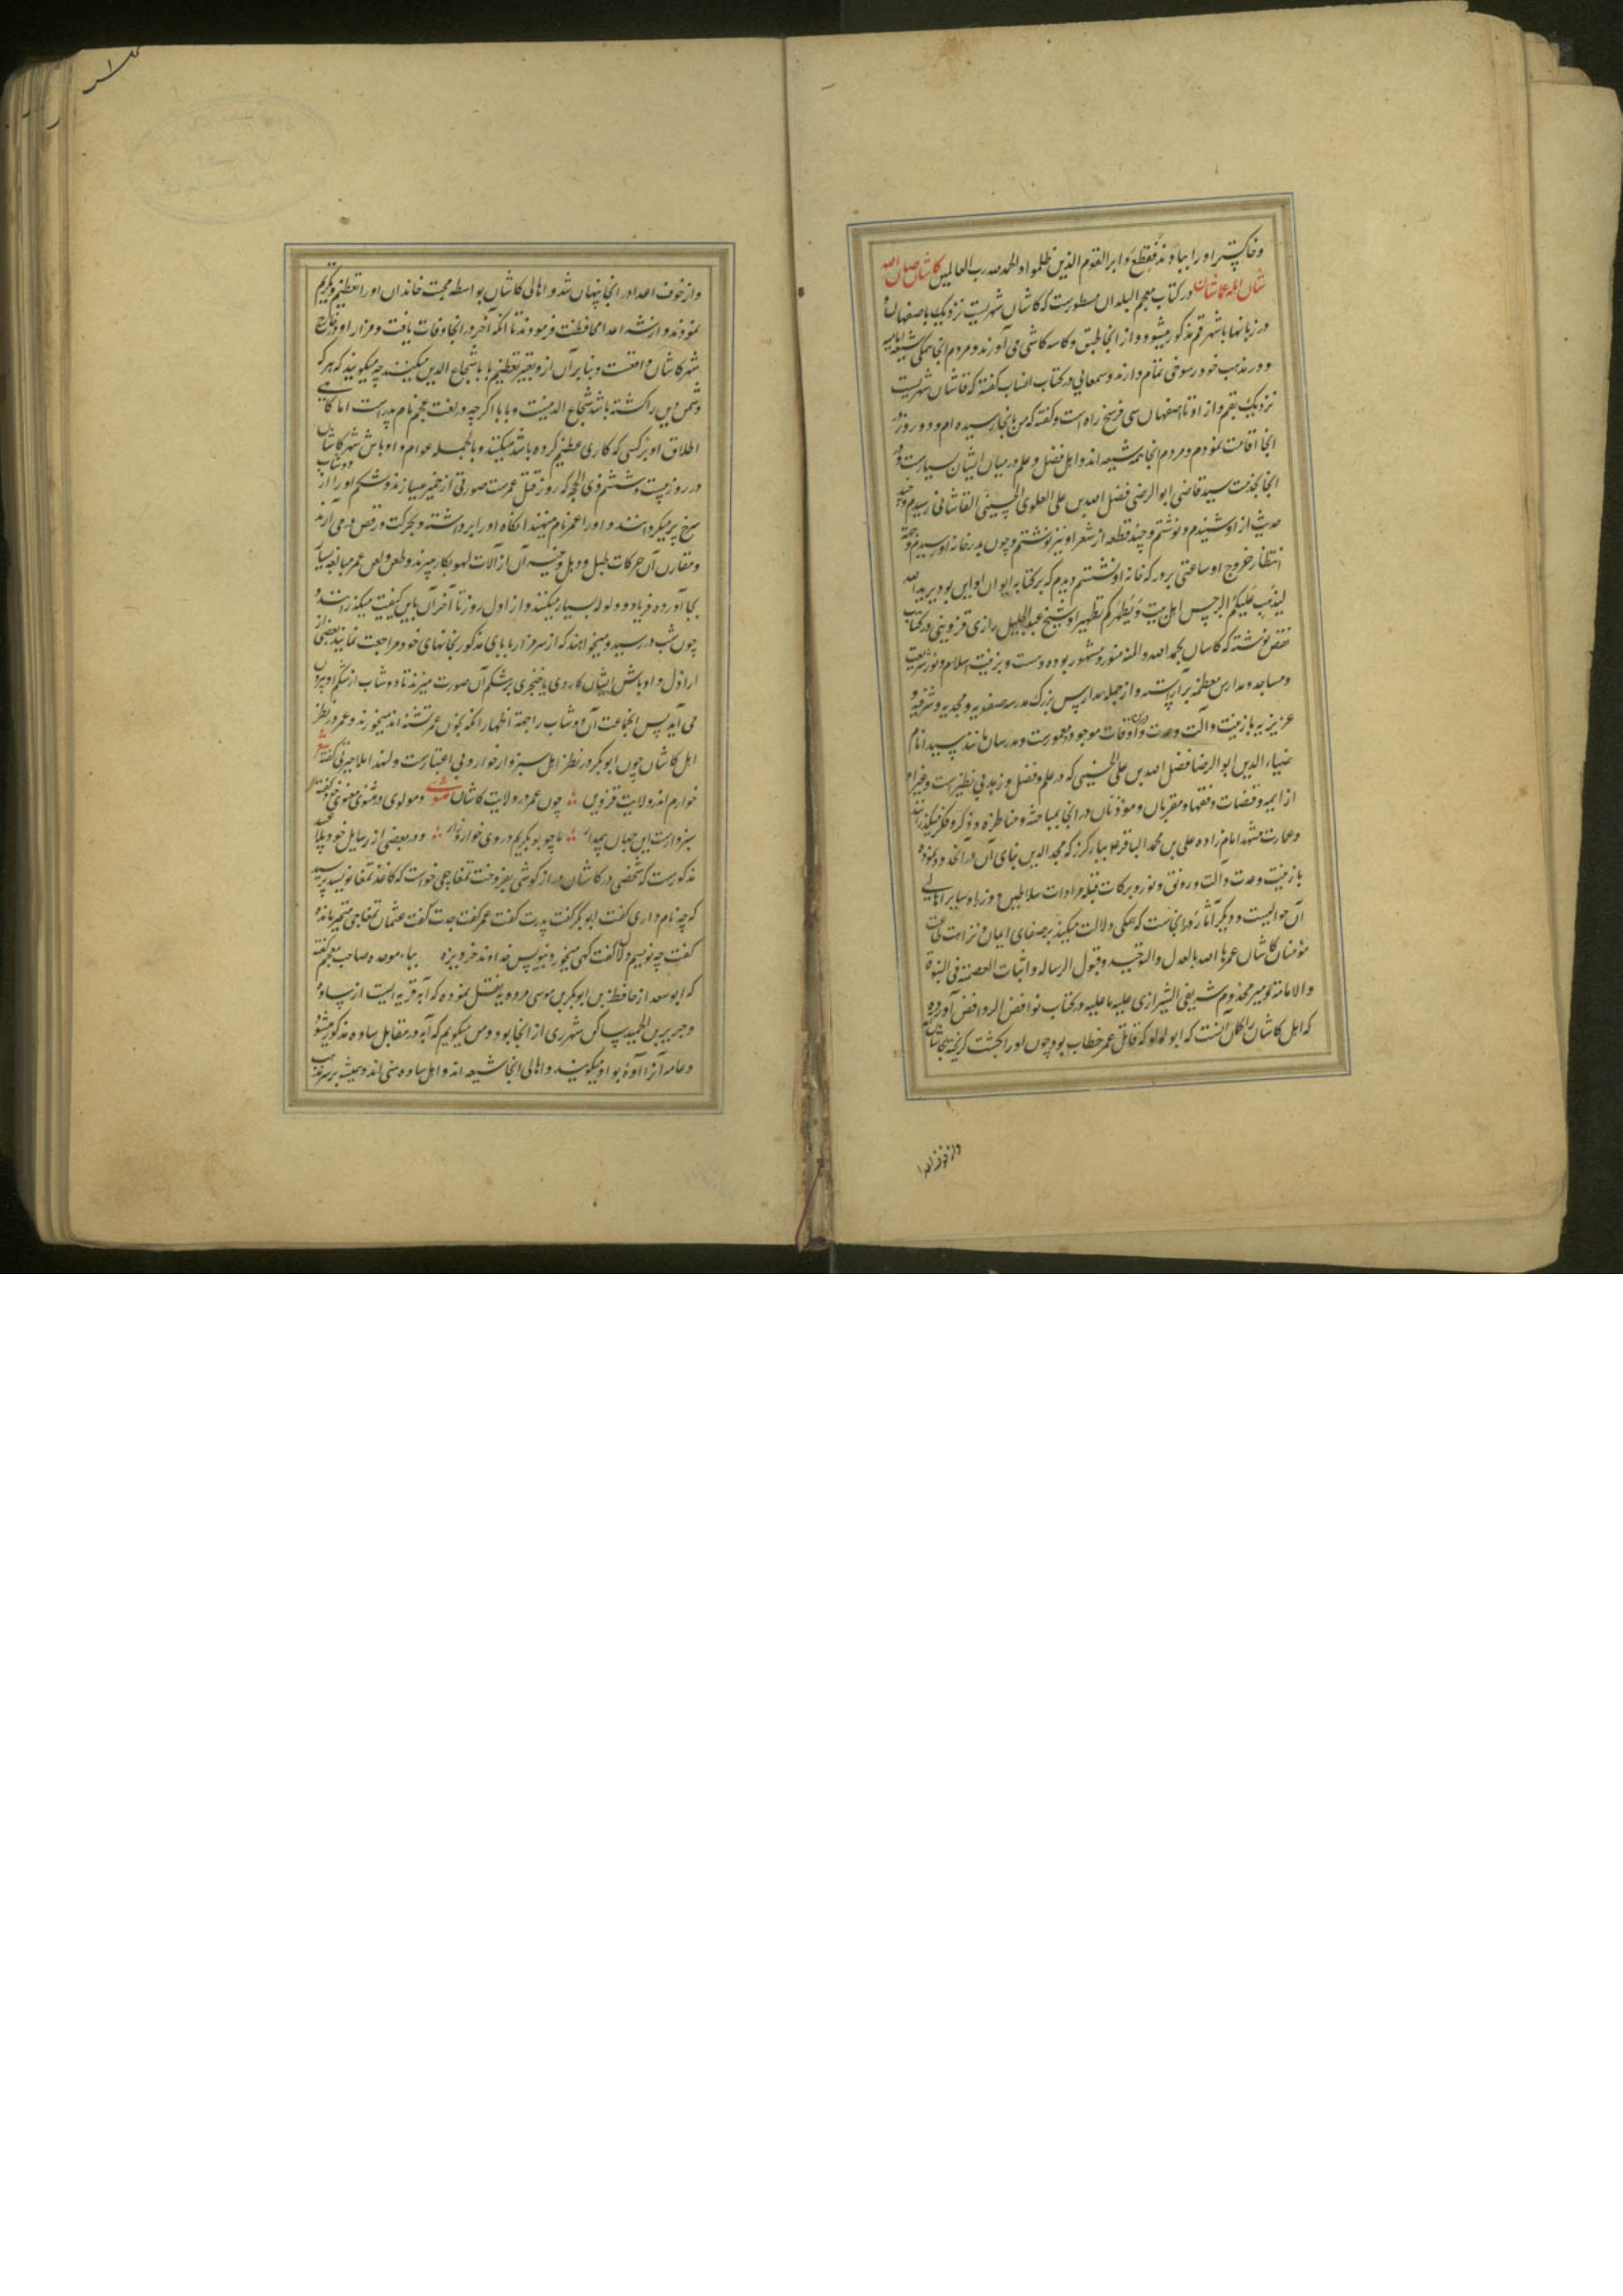 و خاکستر او را بباد دهند فقطع دابر القوم الذین ظلموا و الحمد لله رب العالمین کاشان صان الله
شان اهله عما شان در کتاب معجم البلدان مسطورست که کاشان شهریست نزدیک باصفهان و
در زبانها با شهر قم مذکور میشود و از انجا طبق و کاسه کاشی می آورند و مردم انجا همگی شیعه امامیه
و در مذهب خود رسوخی تمام دارند و سمعانی در کتاب انساب گفته که قاشان شهریست
نزدیک بقم و از او تا اصفهان سی فرسخ راه است و گفته که من بانجا رسیده ام و دو روز در
انجا اقامت نمودم و مردم انجا همه شیعه اند و اهل فضل و علم در میان ایشان بسیارست و در
انجا بخدمت سید قاضی ابو الرضی فضل الله بن علی العلوی الحسینی القاشانی رسیدم و چند
حدیث از او شنیدم و نوشتم و چند قطعه از شعر او نیز نوشتم و چون بدر خانه او رسیدم و جهة
انتظار خروج او ساعتی بر در که خانه او نشستم دیدم که بر کتابه ایوان او این بود یرید الله
لیذهب علیکم الرجس اهل بیت و یطهرکم تطهیرا و شیخ عبد الجلیل رازی قزوینی در کتاب
نقض نوشته که کاسان بحمد الله و المنه منور و مشهور بوده و ست و بزینت اسلام و نور شریعت
و مساجد و مدارس معظمه براراسته و از جمله مدارس بزرگ مدرسه صفویه و مجدیه و شرفیه و
عزیزیه با زینت و آلت و عدت و اوقات موجود و معمورست و مدرسان مانند سید امام
ضیاء الدین ابو الرضا فضل الله بن علی الحسینی که در علم و فضل و زهد بی نظیرست و غیر او
از ایمه و قضات و فقها و مقریان و موذنان در انجا بمباحثه و مناظره و ذکر و فکر میگذرانند
و عمارت مشهد امام زاده علی بن محمد الباقر علا ببارکرز که مجد الدین بنای آن در آنحدود نموده
با زینت و عدت و آلت و رونق و نور و برکات قبله مرادات سلاطین و وزرا و سایر اهالی
آن حوالیست و دیگر آثار در انجاست که همگی دلالت میکند بر صفای ایمان و نزاهت طاعت
مؤمنان کاشان عمرها الله بالعدل والتوحید و قبول الرساله و اثبات العصمة فی النبوة
و الامامة و میر مخدوم شریفی الشیرازی علیه ما علیه در کتاب نواقض الروافض آورده
که اهل کاشان را گمان آنست که ابو لولو که قاتل عمر خطاب بود چون او را بکشت کریخته بکاشان
واز خوف اعدا
واز خوف اعدا در انجا پنهان شد و اهالی کاشان بواسطه محبت خاندان او را تعظیم و تکریم
نمودند و از شر اعدا محافظت فرمودند تا انکه آخر در انجا وفات یافت و مزار او در خارج
شهر کاشان واقعست و بنابر آن از و تعبیر تعظیم با بابا شجاع الدین میکنند چه میکویند که هر که
دشمن دین را کشته باشد شجاع الدینست و بابا اکر چه در لغت عجم نام پدر است اما کاهی
اطلاق او بر کسی که کاری عظیم کرده باشد میکنند و بالجمله عوام و اوباش شهر کاشان
در روز بیست و ششم ذی الحجه که روز قتل عمرست صورتی از خمیر میسازند و شکم او را از دوشاب
سرخ پر میکردانند و او را عمر نام مینهند انکاه او را برداشته و بحرکت و رقص در می آرند
و مقارن آن حرکات طبل و دهل و غیر آن از آلات لهو بکار میبرند و طعن و لعن عمر مبالغه بسیار
بجا آورده فریاد و ولوله بسیار میکنند و از اول روز تا آخر آن باین کیفیت میکذرانند و
چون شب در رسید و میخواهند که از سر مزار بابای مذکور بخانهای خود مراجعت نمایند بعضی از
اراذل و اوباش ایشان کاردی یا خنجری بر شکم آن صورت میزنند تا دوشاب از شکم او بیرون
می آید پس انجماعت آن دوشاب را جهة اظهار انکه بخون عمر تشنه اند میخورند و عمر در نظر
اهل کاشان چون ابو بکر در نظر اهل سبزوار خوار و بی اعتبارست و لهذا ملا حیرتی گفته شعر
خوارم اندر ولایت قزوین چون عمر در ولایت کاشان مثنوی و مولوی در مثنوی معنوی گفته شعر
سبزوارست این جهان بیمدار ما چو بوبکریم در وی خوار و زار و در بعضی از رسایل خود ملا عبید
مذکورست که شخصی در کاشان دراز کوشی بفروخت تمغاجی خواست که کاغذ تمغا نویسد پرسید
که چه نام داری گفت ابو بکر گفت پدرت گفت عمر گفت جدت گفت عثمان تمغاجی متحیر مانده
گفت چه نویسم دلال گفت کهی میخور و بنویس خداوند خر دیزه بباء موحده صاحب معجم گفته
که ابو سعد از حافظ بن ابو بکر بن موسی مردویه نقل نموده که آبه قریه ایست از ساوه
و جریر بن الحمید ساکن شهر ری از انجا بود و من میگویم که آبه در مقابل ساوه مذکور میشود
و عامه آنرا آوه بواو میکویند و اهالی انجا شیعه اند و اهل ساوه سنی اند و همیشه بر سر مذهب